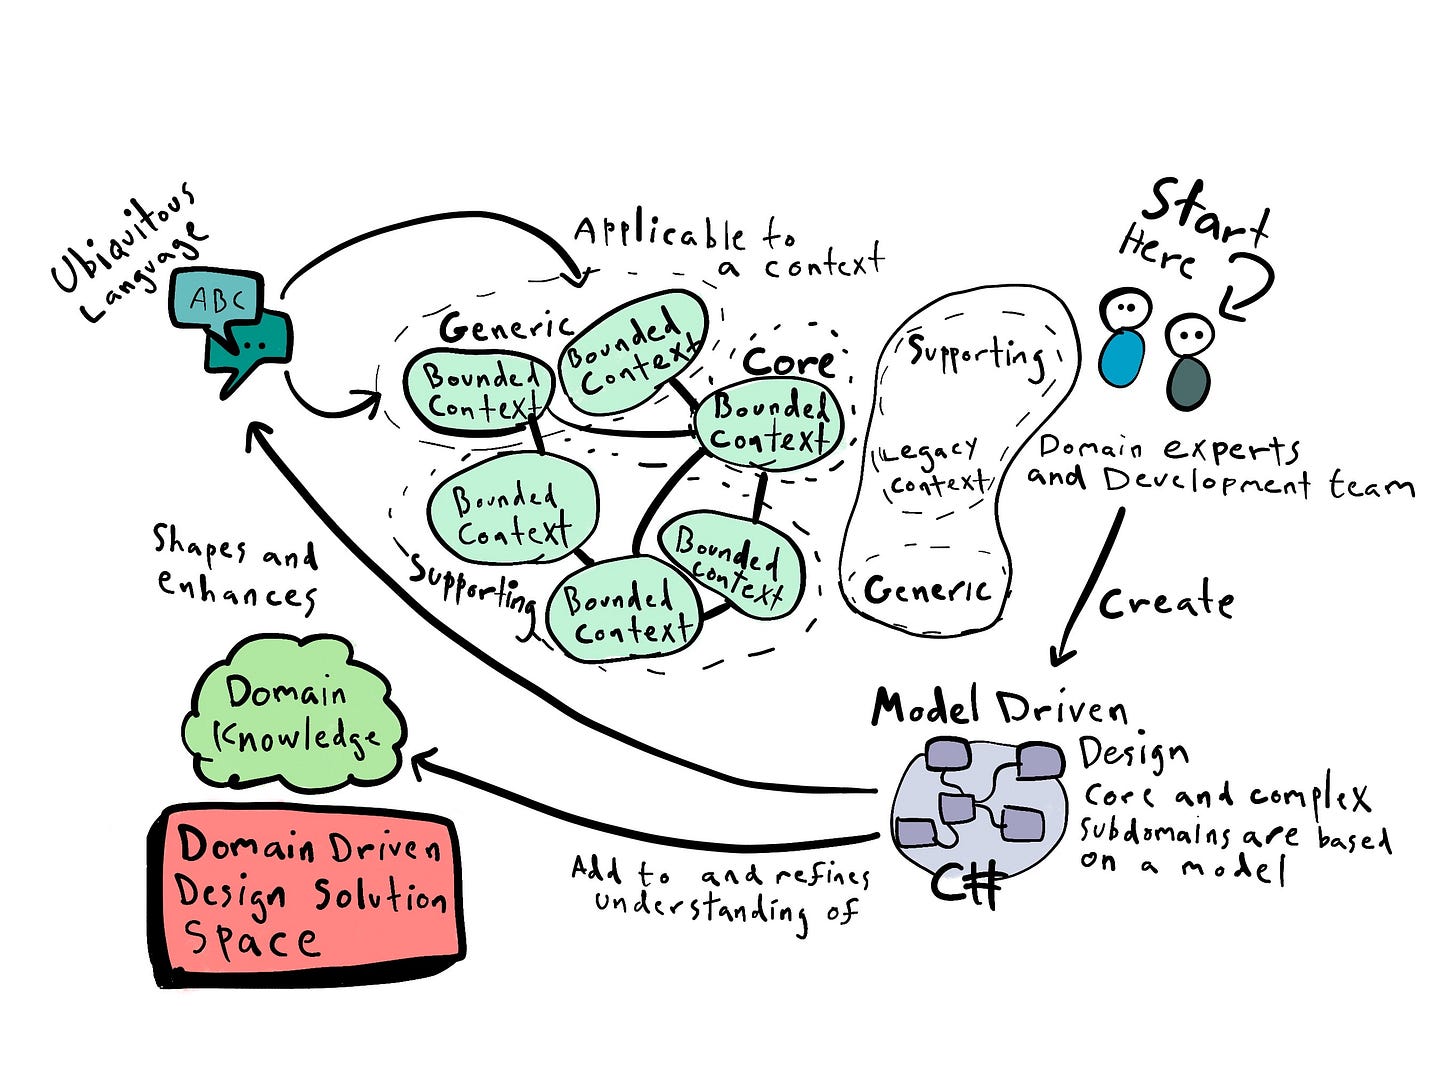 Ubiquitous
Language
ABC
Applicable to
a context
Start
Here
Generic
Bounded
Context
Bounded
Context
Core
Bounded
Context
Bounded
Context
Supporting
Bounded
Context
Bounded
Context
Supporting
Legacy
Context
Generic
Domain experts
and Development team
Create
Shapes and
enhances
Domain
Knowledge
Model Driven
Design
Core and complex
subdomains are based
on a model
C#
Add to and refines
understanding of
Domain Driven
Design Solution
Space